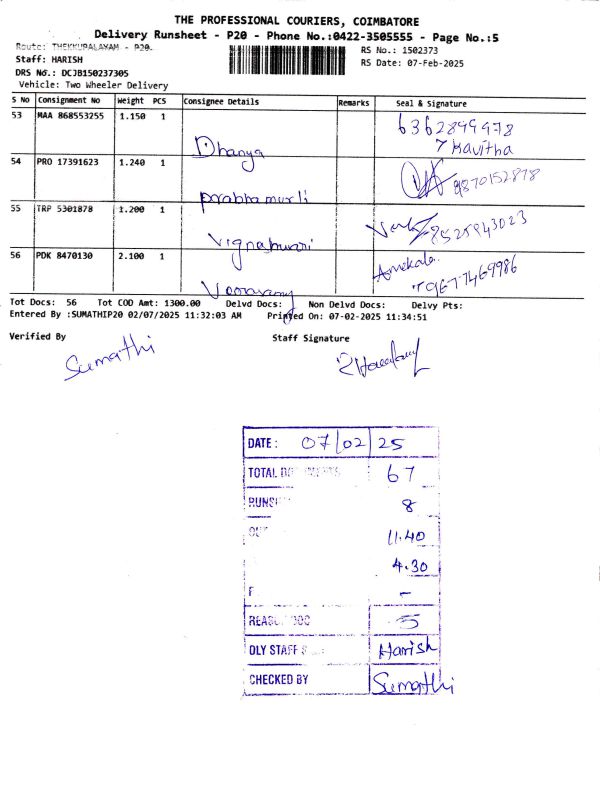 THE PROFESSIONAL COURIERS, COIMBATORE
Delivery Runsheet - P20 - Phone No.:0422-3505555 - Page No.:5
Route: THEKKUPALAYAM - P20.
RS No.: 1502373
Staff: HARISH
RS Date: 07-Feb-2025
DRS No.: DCJB150237305
Vehicle: Two Wheeler Delivery
S No Consignment No Weight PCS Consignee Details Remarks Seal & Signature
53 MAA 868553255 1.150 1
6362899978
Kavitha
Dhanya
54 PRO 17391623 1.240 1
9870152878
Prabhamurli
55 TRP 5301878 1.200 1
8525943023
56 PDK 8470130 2.100 1
Tot Docs: 56 Tot COD Amt: 1300.00 Delvd Docs: Non Delvd Docs: Delvy Pts:
Entered By :SUMATHIP20 02/07/2025 11:32:03 AM Printed On: 07-02-2025 11:34:51
Verified By Staff Signature
Sumathi
DATE : 07/02/25
TOTAL 67
8
11.40
4.30
-
5
DLY STAFF Harish
CHECKED BY Sumathi